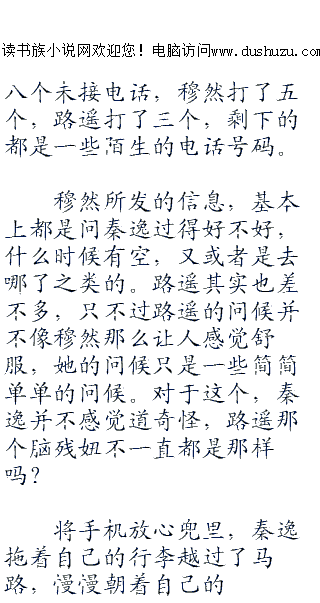 读书族小说网欢迎您！电脑访问www.dushuzu.com
八个未接电话，穆然打了五
个，路遥打了三个，剩下的
都是一些陌生的电话号码。
穆然所发的信息，基本
上都是问秦逸过得好不好，
什么时候有空，又或者是去
哪了之类的。路遥其实也差
不多，只不过路遥的问候并
不像穆然那么让人感觉舒
服，她的问候只是一些简简
单单的问候。对于这个，秦
逸并不感觉道奇怪，路遥那
个脑残妞不一直都是那样
吗？
将手机放心兜里，秦逸
拖着自己的行李越过了马
路，漫漫朝着自己的